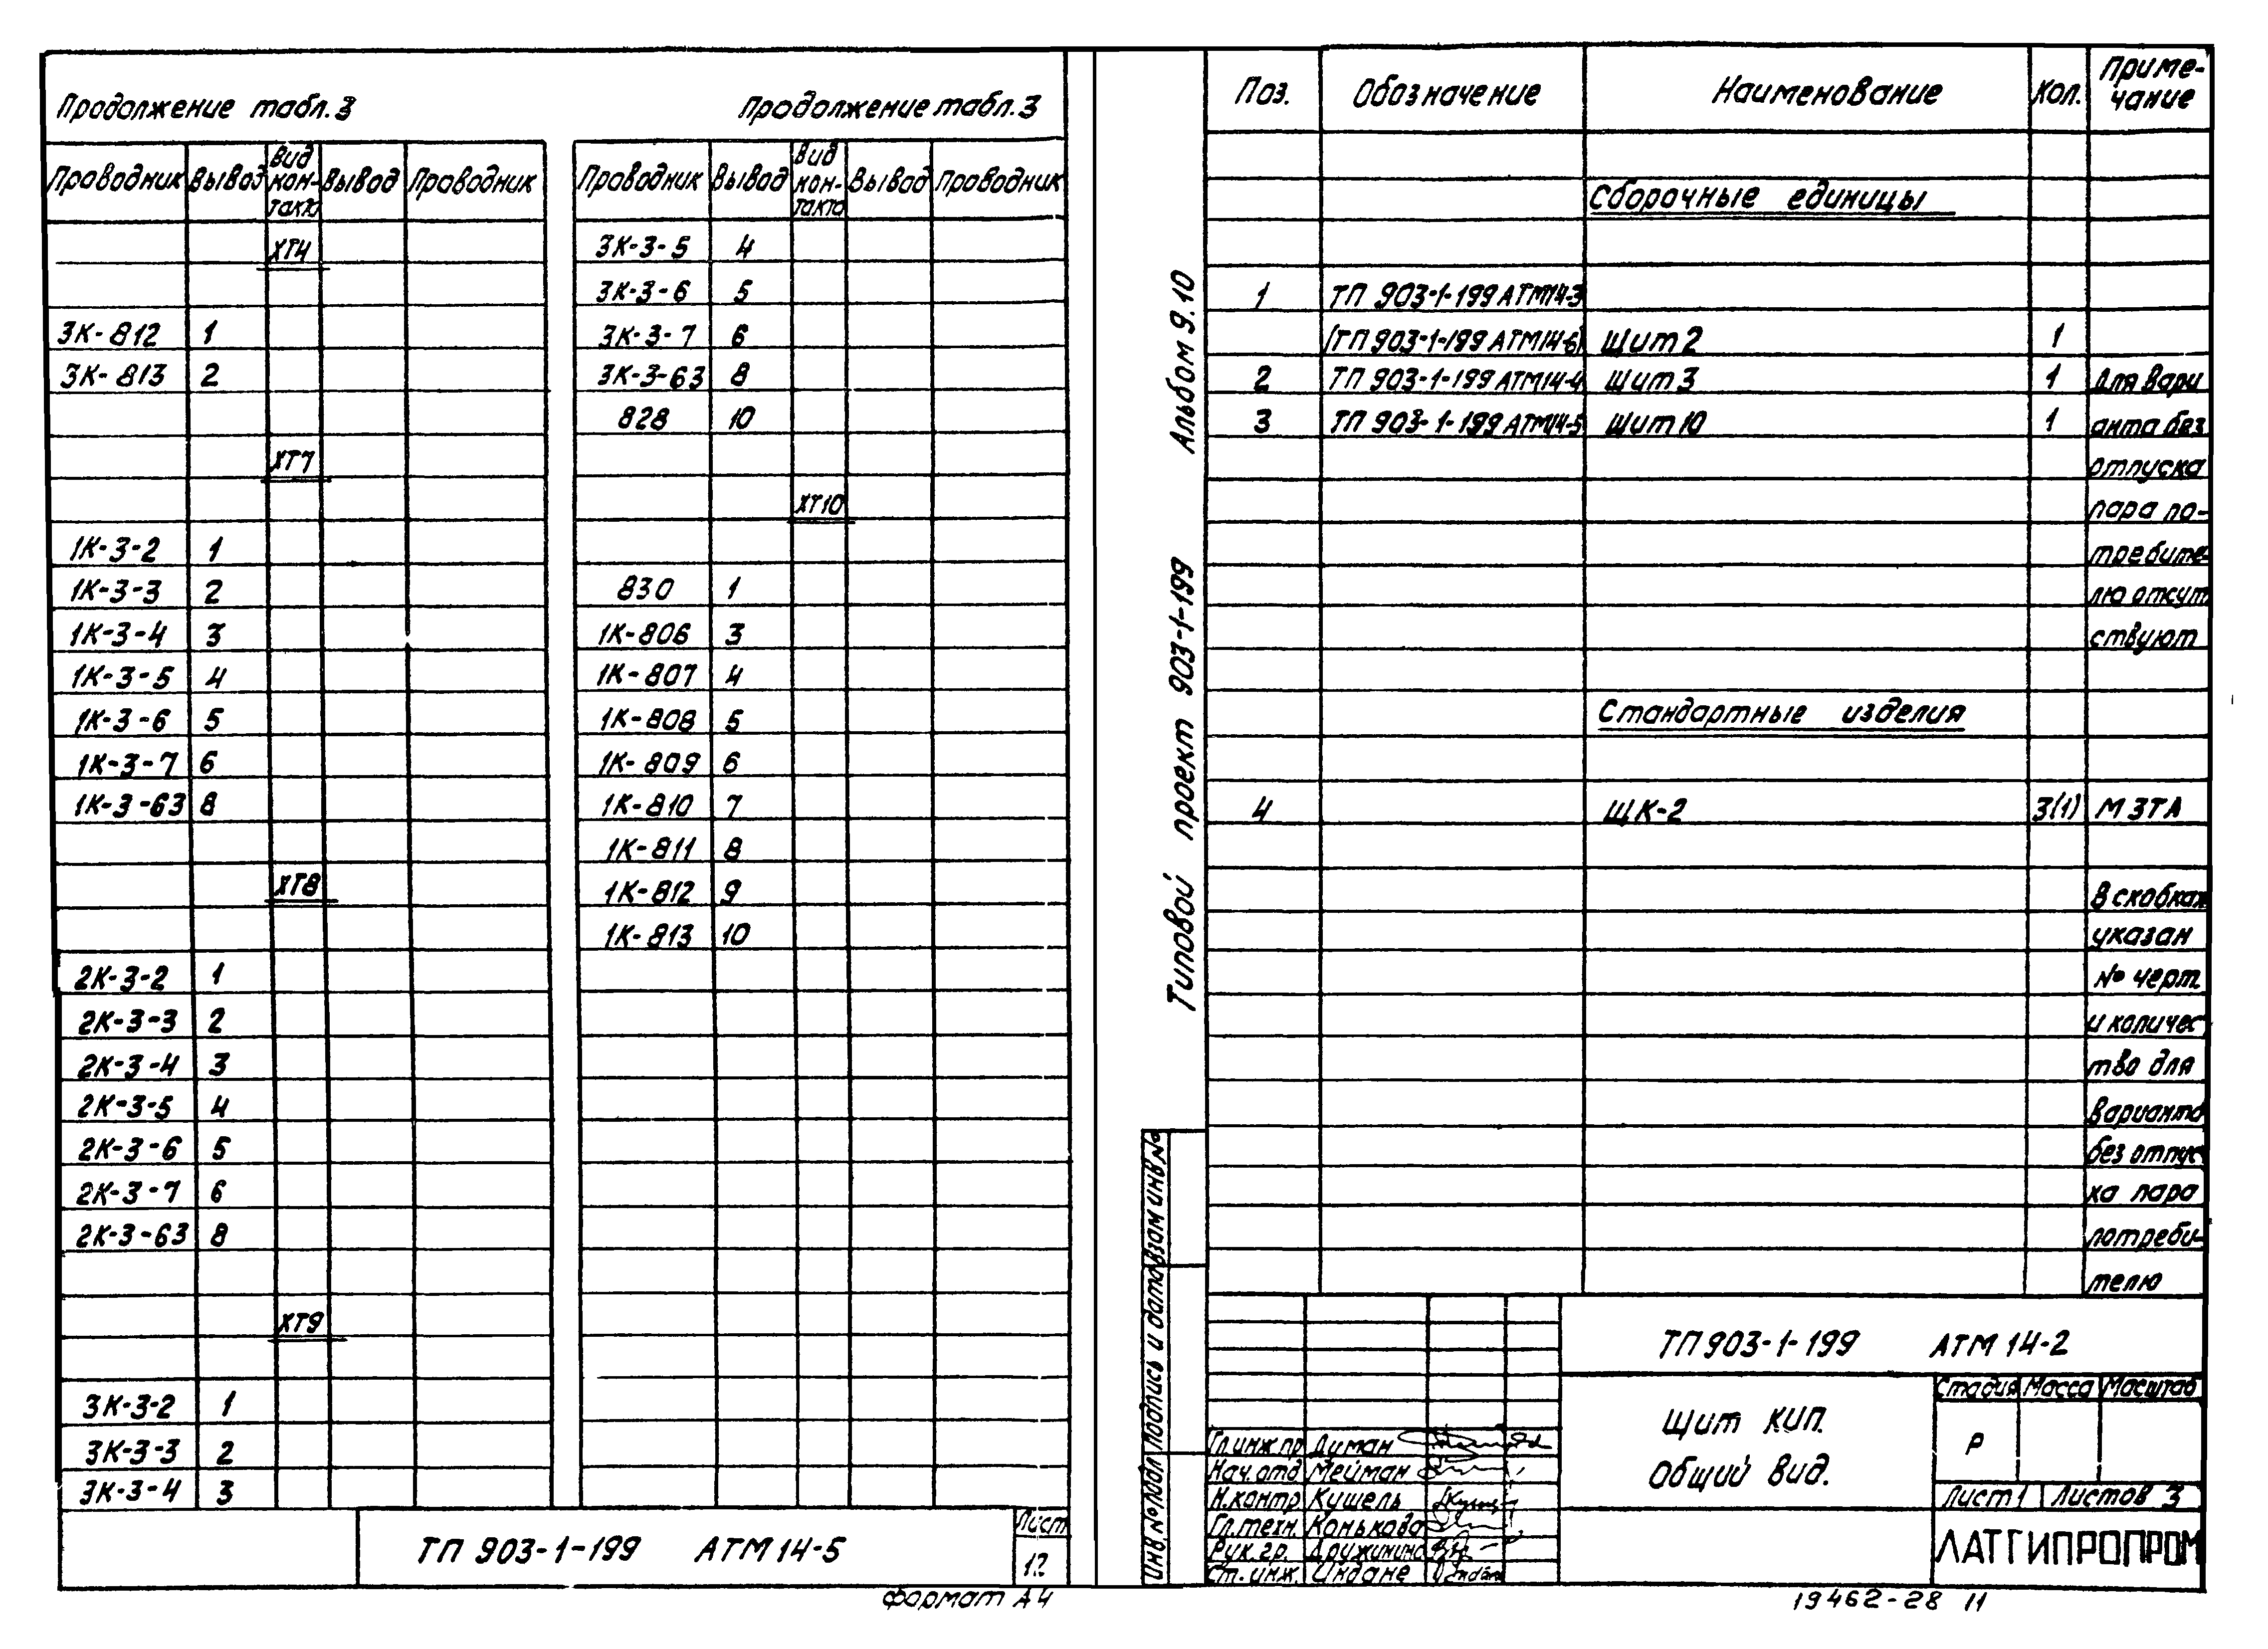 Продолжение табл.3
Проводник Вывод Вид контакта Вывод Проводник
ХТ4
3К-812 1
3К-813 2
ХТ7
1К-3-2 1
1К-3-3 2
1К-3-4 3
1К-3-5 4
1К-3-6 5
1К-3-7 6
1К-3-63 8
ХТ8
2К-3-2 1
2К-3-3 2
2К-3-4 3
2К-3-5 4
2К-3-6 5
2К-3-7 6
2К-3-63 8
ХТ9
3К-3-2 1
3К-3-3 2
3К-3-4 3
Продолжение табл.3
Проводник Вывод Вид контакта Вывод Проводник
3К-3-5 4
3К-3-6 5
3К-3-7 6
3К-3-63 8
828 10
ХТ10
830 1
1К-806 3
1К-807 4
1К-808 5
1К-809 6
1К-810 7
1К-811 8
1К-812 9
1К-813 10
ТП 903-1-199 АТМ14-5
Лист
12
формат А4
Типовой проект 903-1-199 Альбом 9.10
Поз. Обозначение Наименование Кол. Приме-
чание
Сборочные единицы
1 ТП 903-1-199 АТМ14-3
(ТП 903-1-199 АТМ14-6) Щит 2 1
2 ТП 903-1-199 АТМ14-4 Щит 3 1 Для вари
3 ТП 903-1-199 АТМ14-5 Щит 10 1 анта без
отпуска
пара по-
требите-
лю отсут
ствуют
Стандартные изделия
4 ЩК-2 3(1) МЗТА
В скобках
указан
№ черт.
и количес
тво для
варианта
без отпус
ка пара
потреби-
телю
Инв.№подл Подпись и дата Взам инв№
ТП 903-1-199 АТМ 14-2
Щит КИП.
Общий вид.
Стадия Масса Масштаб
Р
Лист 1 Листов 3
ЛАТГИПРОПРОМ
Гл.инж.пр Диман
Нач.отд Мейман
Н.контр Кушель
Гл.техн. Конькова
Рук.гр. Дружинина
Ст.инж. Индане
19462-28 11